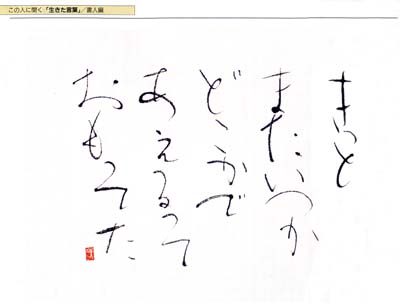 この人に聞く「生きた言葉」／書人編
きっと
またいつか
どこかで
あえるって
おもってた